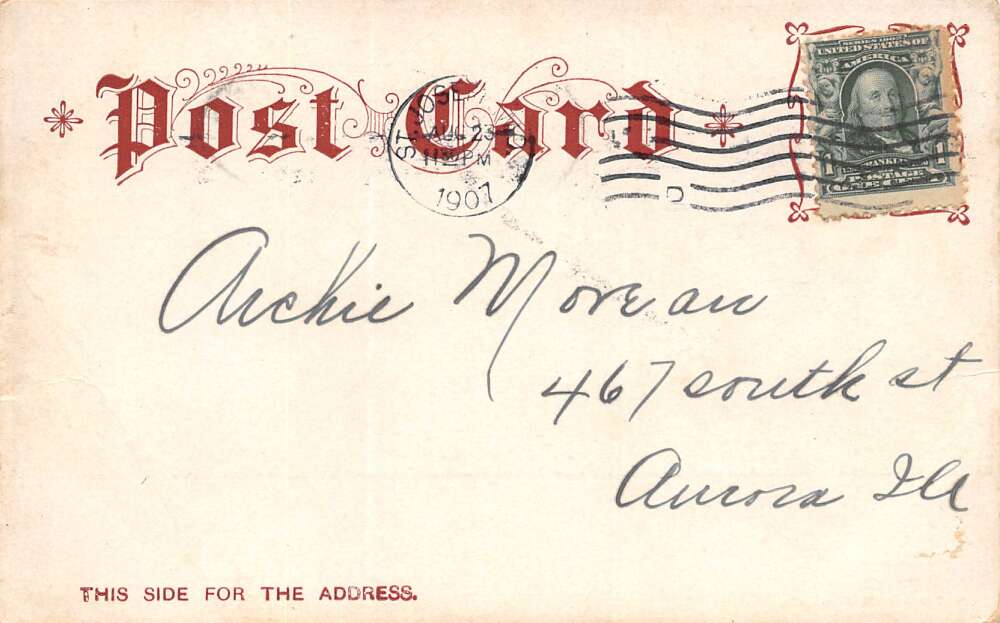 Post Card
ST. JOSEPH
AUG 23
11 PM
1907
D
SERIES 1902
UNITED STATES OF
AMERICA
FRANKLIN
1 1
POSTAGE
ONE CENT
Archie Moreau
467 south st
Aurora Ill
THIS SIDE FOR THE ADDRESS.